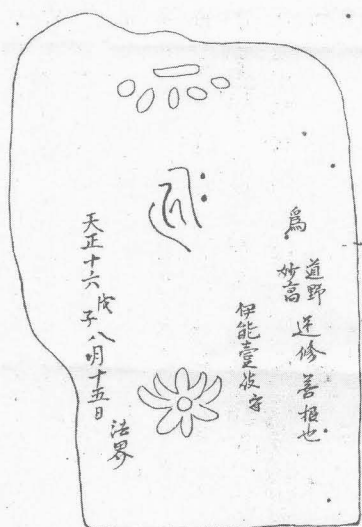 爲 道野 妙高 逆修善根也
伊能壹岐守
天正十六戊子八月十五日
法界